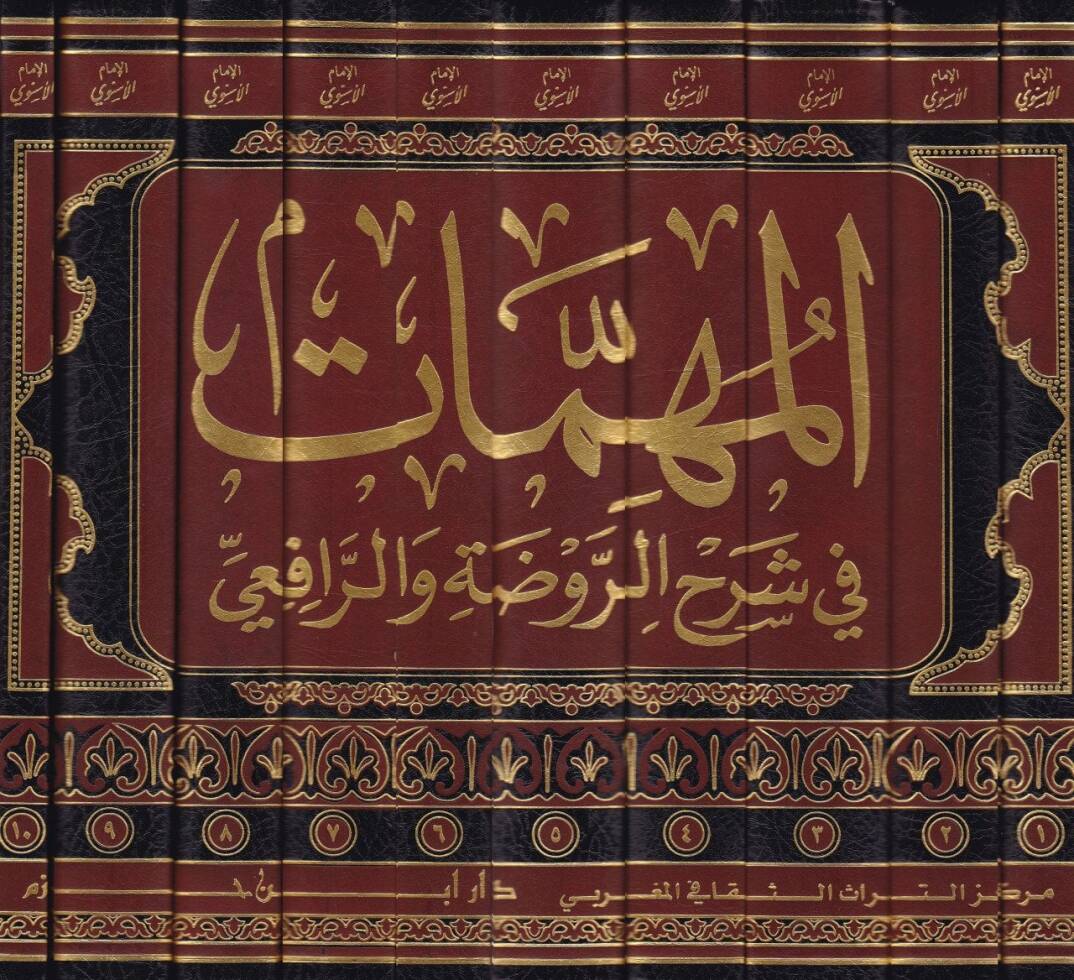 الإمام الأسنوي الإمام الأسنوي الإمام الأسنوي الإمام الأسنوي الإمام الأسنوي الإمام الأسنوي الإمام الأسنوي الإمام الأسنوي الإمام الأسنوي الإمام الأسنوي
المُهِمَّات
في شَرْح الرَّوْضَةِ وَالرَّافِعِيِّ
١ ٢ ٣ ٤ ٥ ٦ ٧ ٨ ٩ ١٠
مركز التراث الثقافي المغربي دار ابن حزم